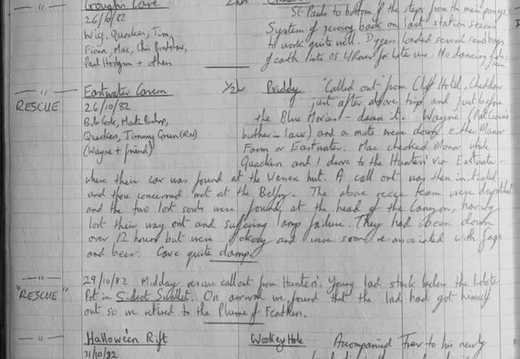 Gough's Cave
26/10/82
Wig, Quackers, Tim,
Fiona, Mac, Chris
Paul Hodgson + others
St Pauls to bottom of the steps from the main passage
System of back on last station seemed
to work quite well. Digger loaded several sandbags
of earth into OS for later use. No dancing
RESCUE
Eastwater Cavern 1/2 Priddy "Called out" from Cliff Hotel, Cheddar
26/10/82 just after above trip and just before
Bob Cork, Mark the Blue Movies! - damn it. Wayne
Quackers, Timmy Green (RN) brother in law) and a mate were down either Manor
(Wayne + friend) Farm or Eastwater. Mac checked Manor while
Quackers and I drove to the Hunters' via Eastwater -
where their car was found at the Wessex hut. A call out was then initiated
and those concerned met at the Belfry. The above rescue team were
and the two lost souls were found at the head of the Canyon, having
lost their way out and suffering lamp failure. They had been down
over 12 hours but were okay and were soon re associated with fags
and beer. Cave quite damp.
"RESCUE" 29/10/82 Midday rescue callout from Hunters'. Young lad stuck below the Lobster
Pot in Sidcot Swallet. On arrival we found that the lad had got himself
out so we retired to the Plume of Feathers.
Hallowe'en Rift Wookey Hole Accompanied Trev to his newly
31/10/82